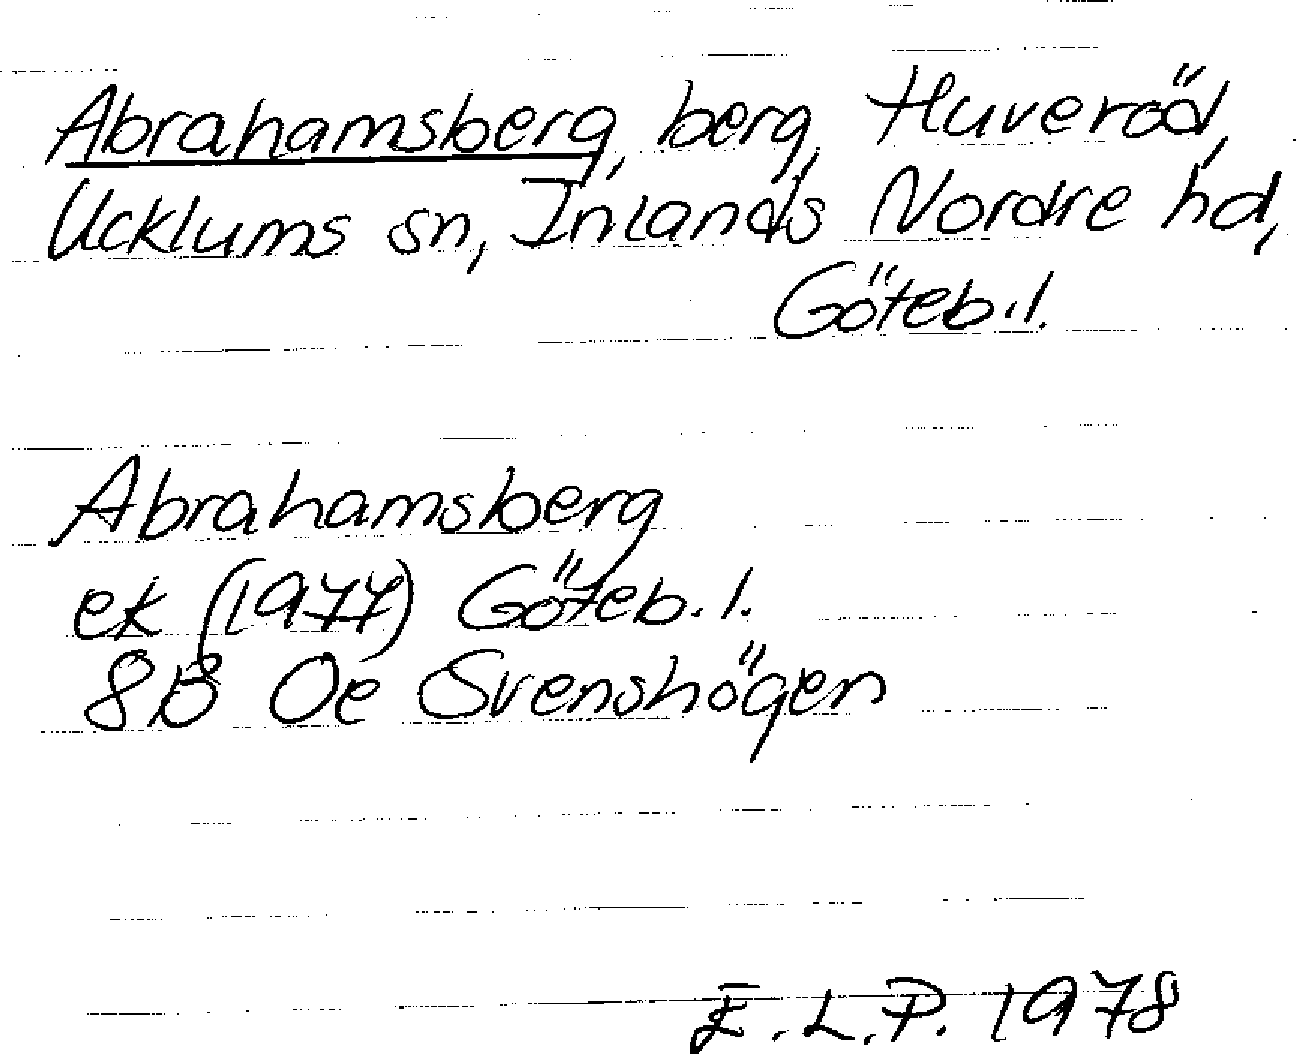 Abrahamsberg, berg, Huveröd,
Ucklums sn, Inlands Nordre hd,
Göteb.l.
Abrahamsberg
ek (1977) Göteb. l.
8B Oe Svenshögen
E.L.P. 1978